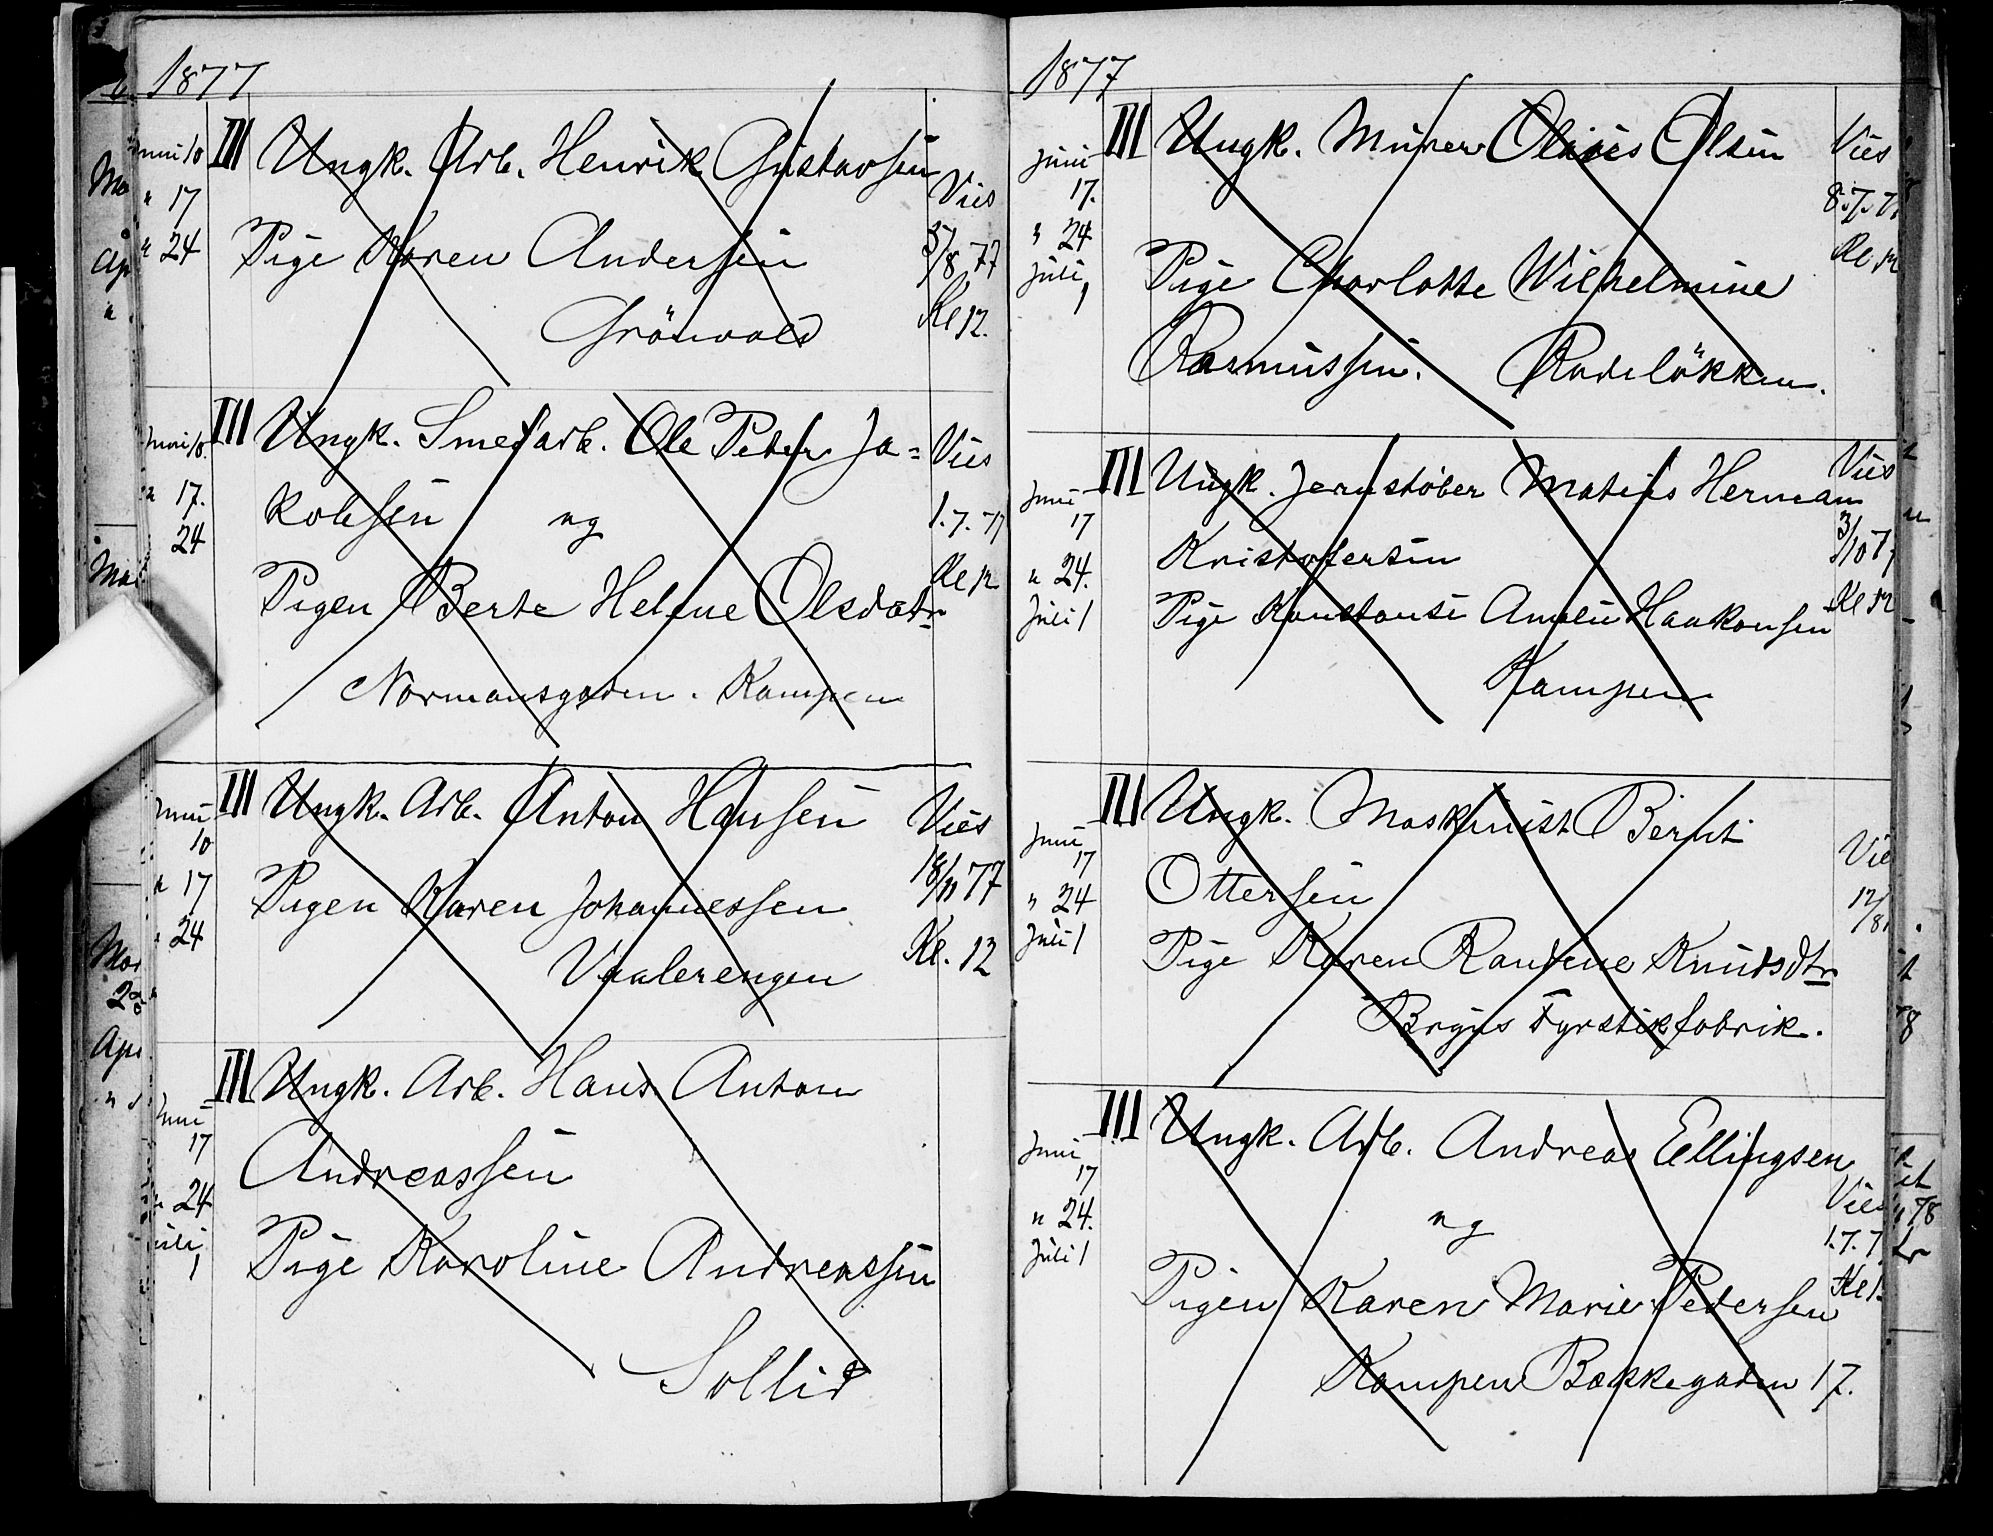 1877
Juni 10 III Ungk. Arb. Henrik Gustavsen Vies
" 17
" 24 Pige Karen Andersen 5/8 77
Grönvold Kl 12.
Juni 10. III Ungk. Smedarb. Ole Peter Ja= Vies
" 17. kobsen og 1.7.77
24
Pigen Berte Helene Olsdatr Kl 12
Normansgaden. Kampen
Juni III Ungk. Arb. Anton Hansen Vies
10
" 17 Pigen Karen Johannessen 18/11 77
" 24 Vaalerengen Kl. 12
Juni III Ungk. Arb. Hans Anton
17 Andreassen
" 24
Juli Pige Karoline Andreassen
1
Sollid
1877
Juni III Ungk. Murer Olaves Olsen Vies
17. 8.7.7
" 24
Juli Pige Charlotte Wilhelmine Kl 12
1
Rasmussen. Rodeløkken.
III Ungk. Jernstöber Matias Herman Vies
Juni
17 Kristofersen 3/10 7
" 24.
Juli 1 Pige Konstanse Amalie Haakonsen Kl 12
Kampen
III Ungk. Maskinist Bernt
Juni
17 Ottersen Vie
" 24 12/8
Juli 1 Pige Karen Randine Knudsdtr
Bryns Fyrstikfabrik.
III Ungk. Arb. Andreas Ellingsen
Juni
17 Vies
" 24. og 1.7.7
Juli 1
Pigen Karen Marie Pedersen Kl 1
Kampen Bakkegaden 17.